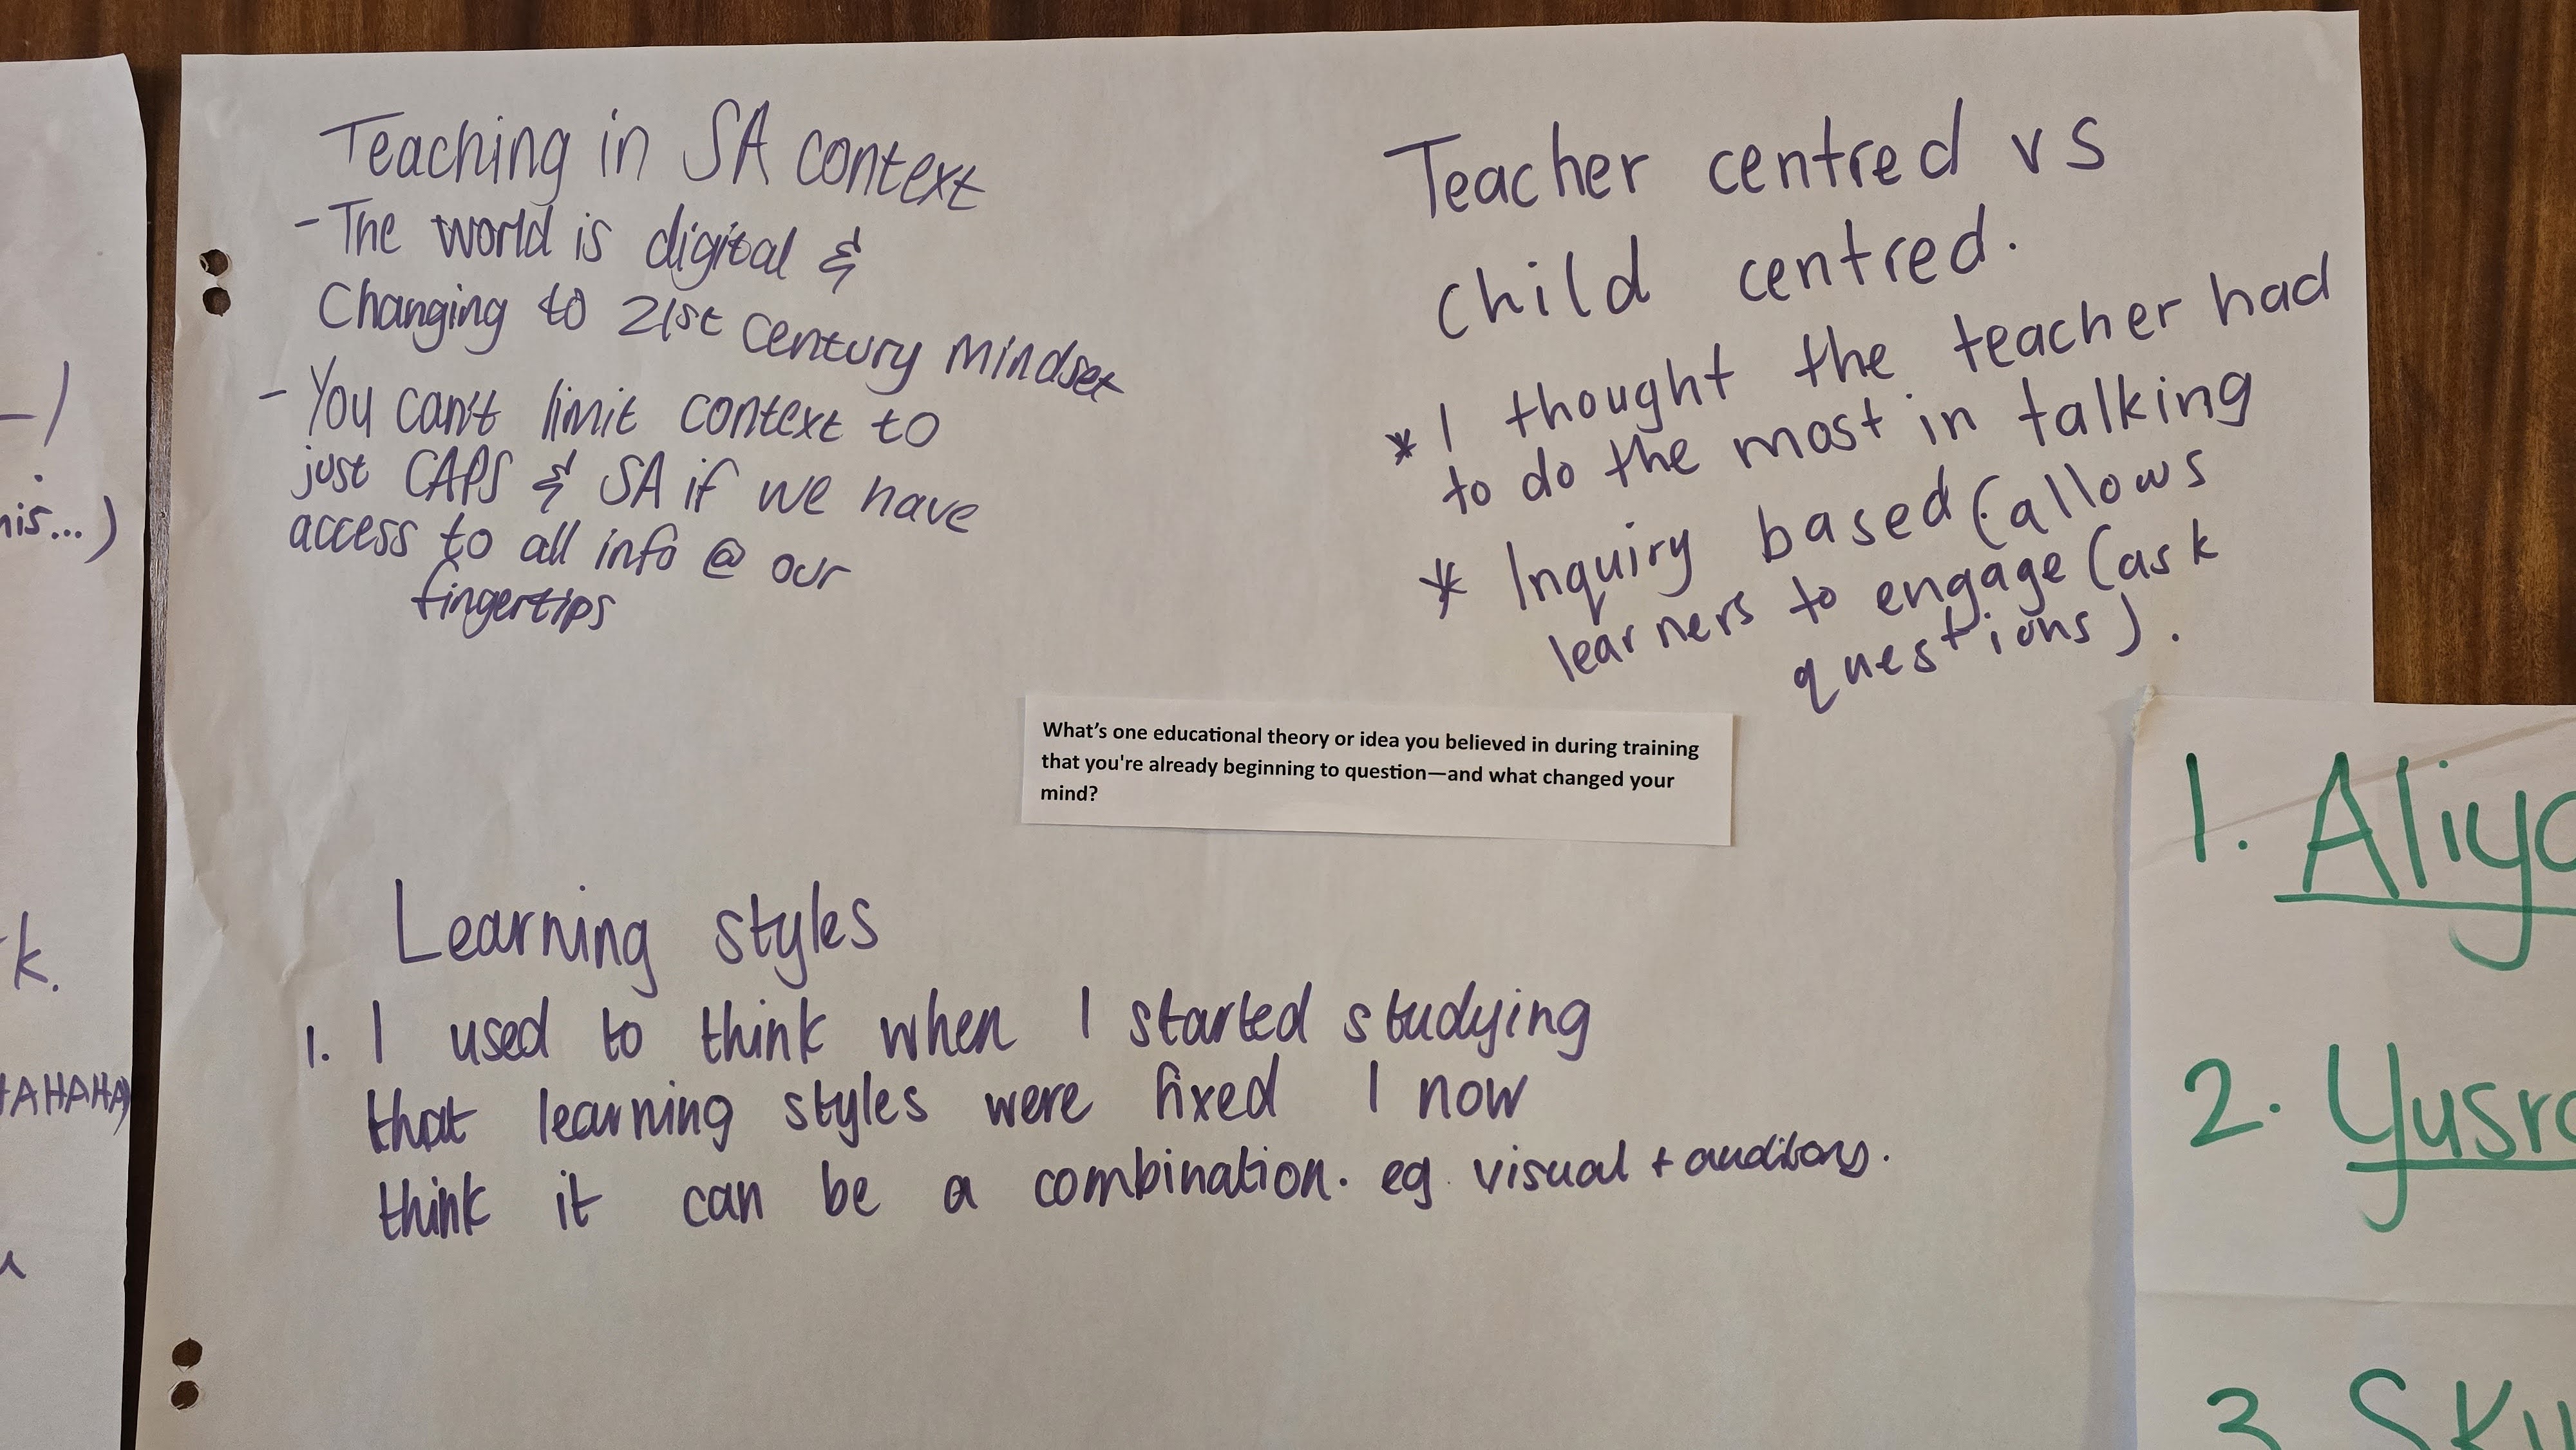 Teaching in SA context
- The world is digital &
Changing to 21st century mindset
- You can't limit context to
just CAPS & SA if we have
access to all info @ our
fingertips
Teacher centred vs
child centred.
* I thought the teacher had
to do the most in talking
* Inquiry based (allows
learners to engage (ask
questions).
What's one educational theory or idea you believed in during training
that you're already beginning to question—and what changed your
mind?
Learning styles
1. I used to think when I started studying
that learning styles were fixed I now
think it can be a combination. eg. visual + auditory.
his...)
k.
AHAHA)
1. Aliya
2. Yusra
3. Sky